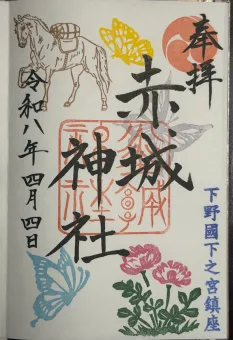 奉拝
赤城神社
下野國下之宮鎮座
令和八年 四月四日